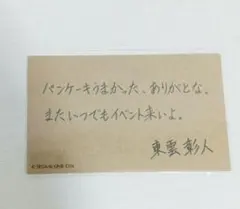 パンケーキうまかった、ありがとな。
またいつでもイベント来いよ。
東雲彰人